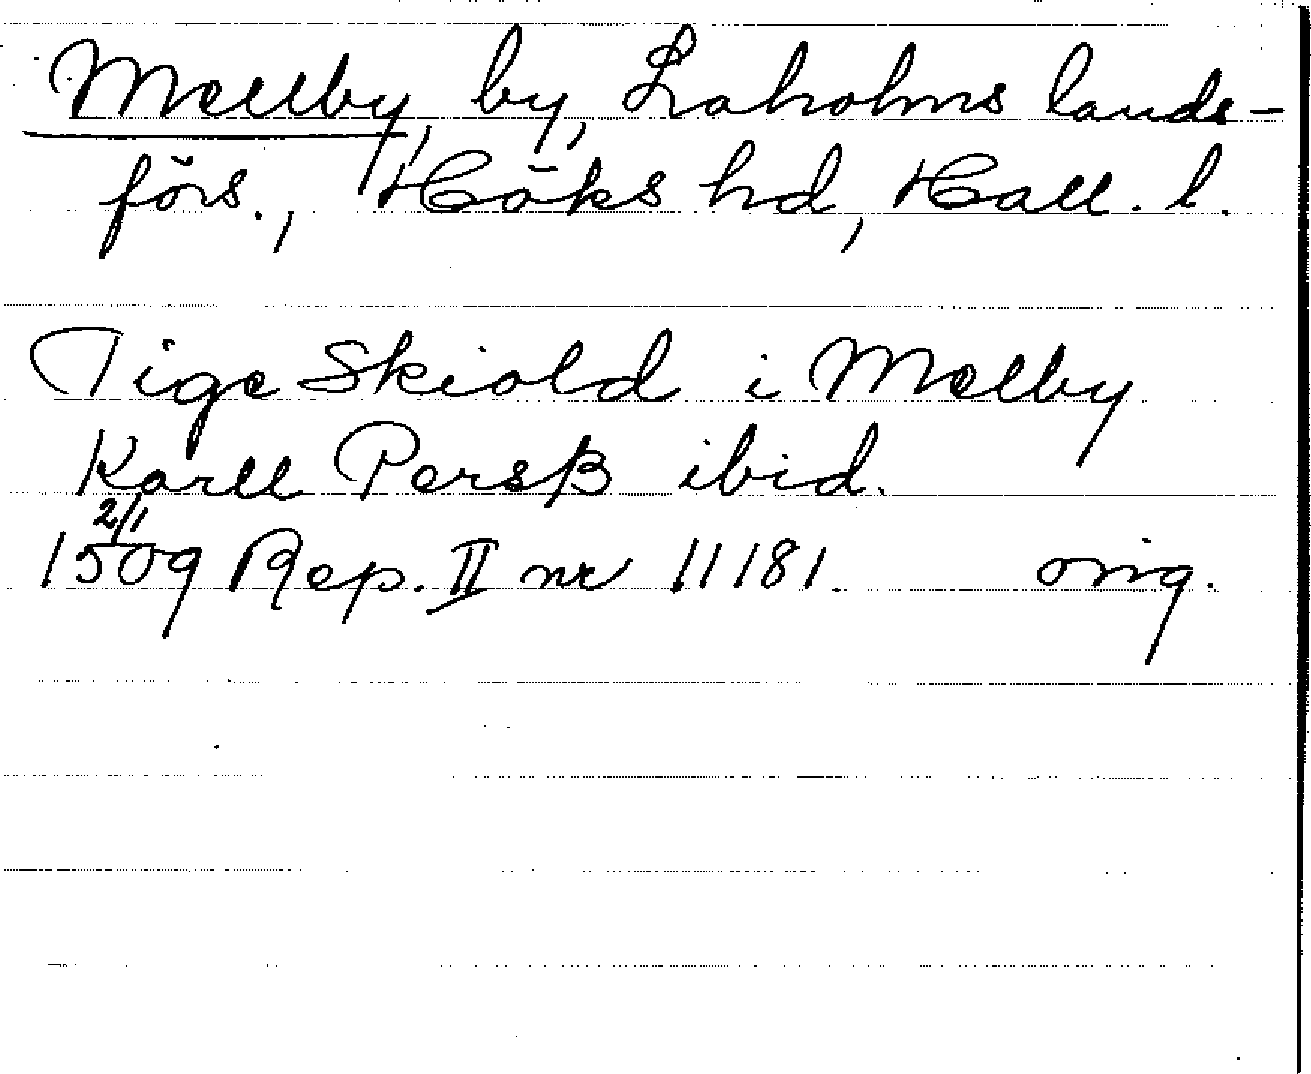 Mellby, by, Laholms lands-
förs., Höks hd, Hall. l.
Tige Skiold i Melby
Karll Persß ibid.
2/1
1509 Rep. II nr 11181. orig.